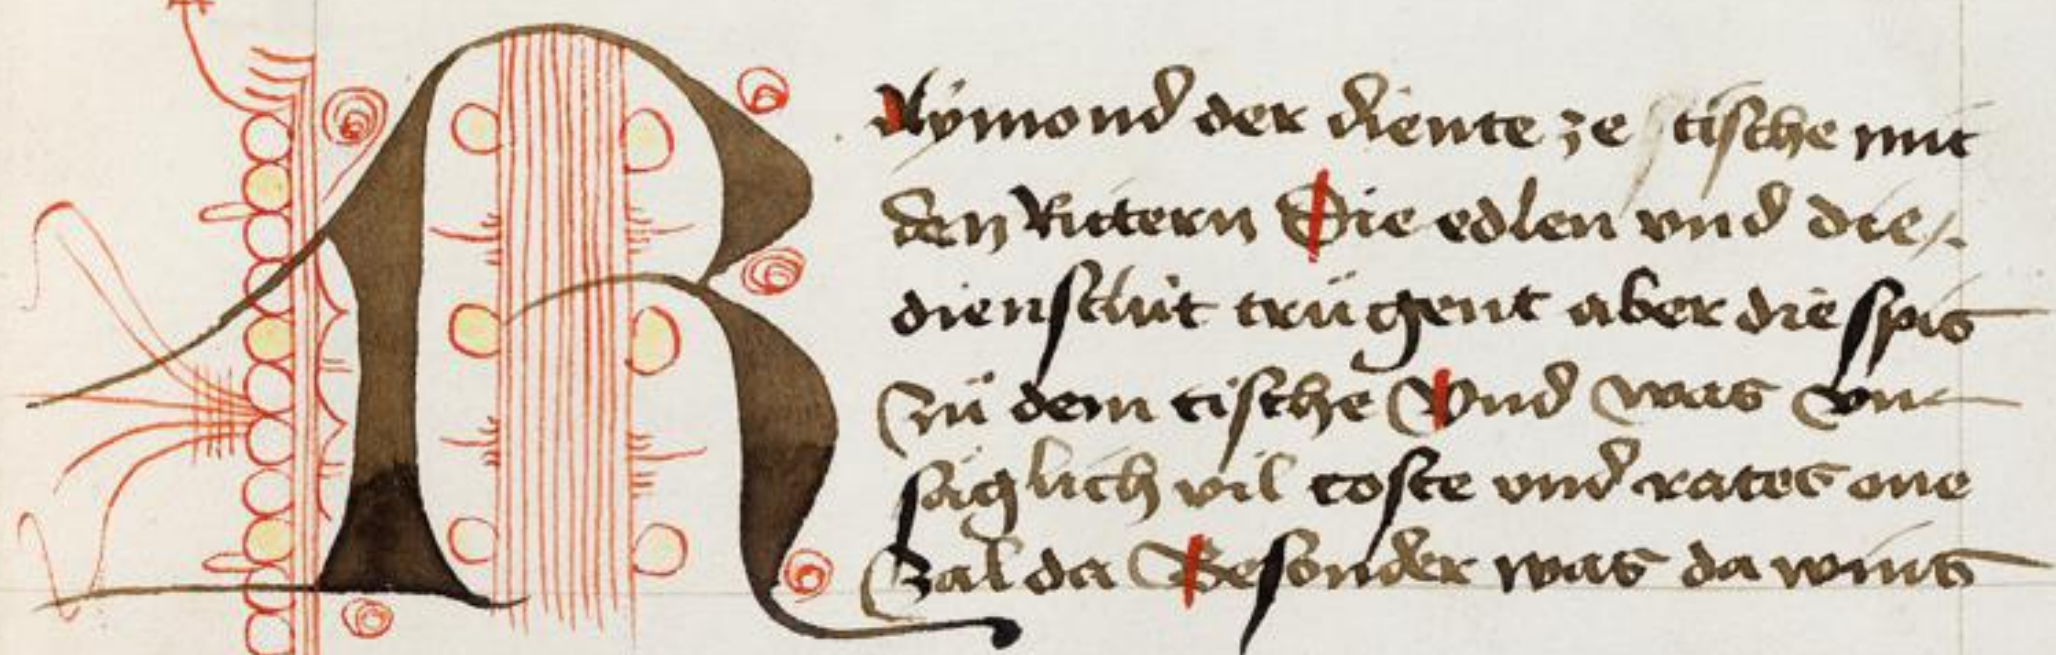 RRymond der diente ze tische mit
den Rittern Die edlen vnd die /.
dienstlüt trügent aber die spis
Zü dem tische Vnd was vn
säglich vil coste vnd rates one
Zal da Besonder was da wins